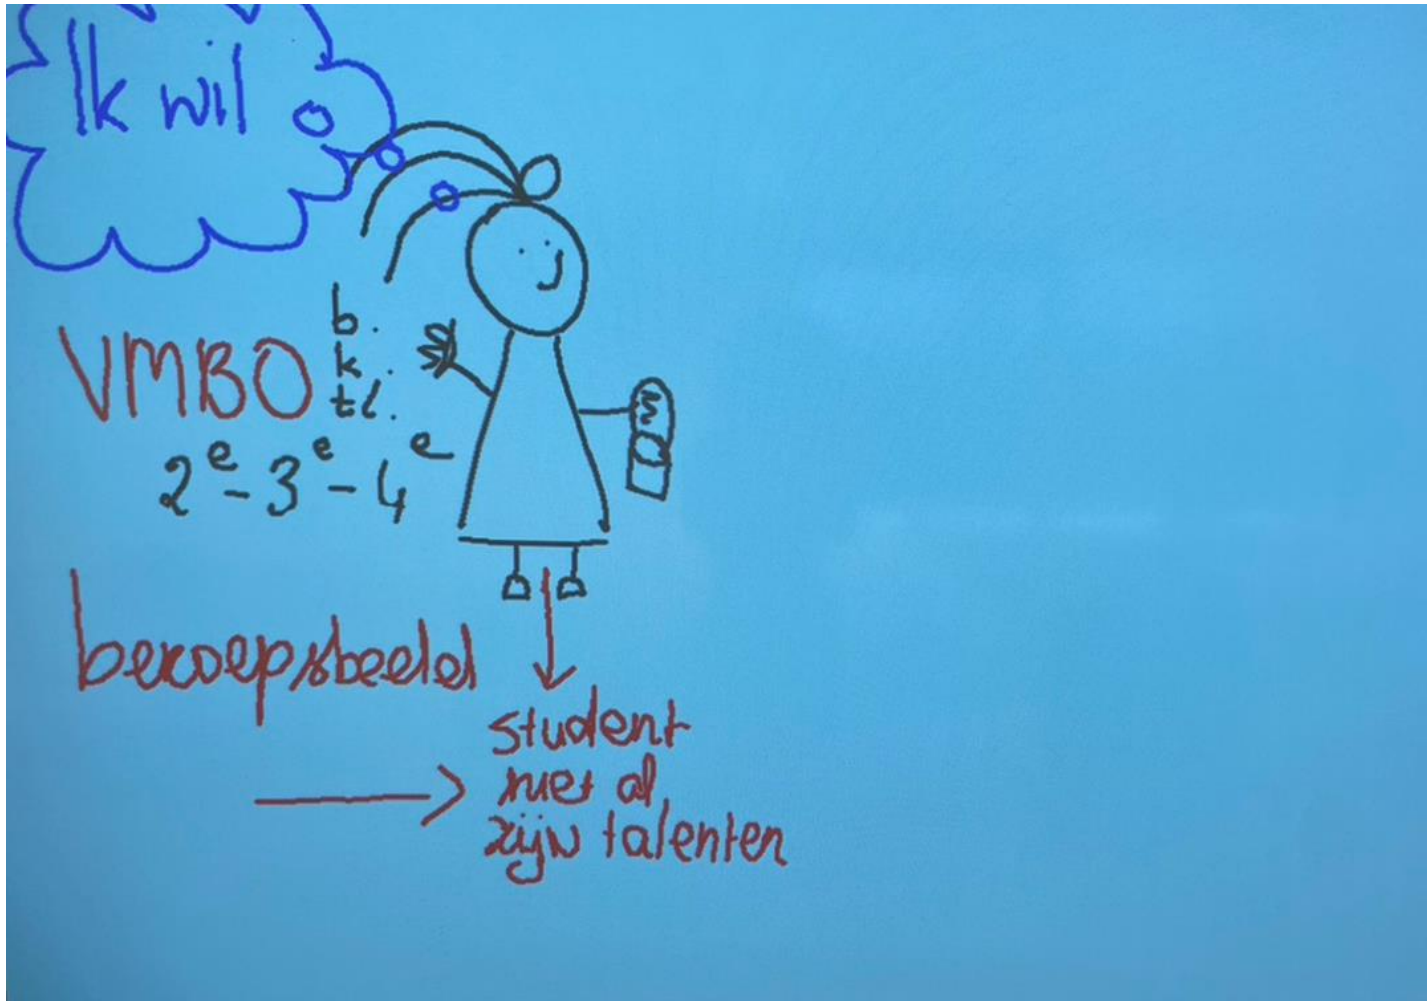 Ik wil
VMBO
b.
k.
tl.
2e - 3e - 4e
beroepsbeeld
student
met al
zijn talenten